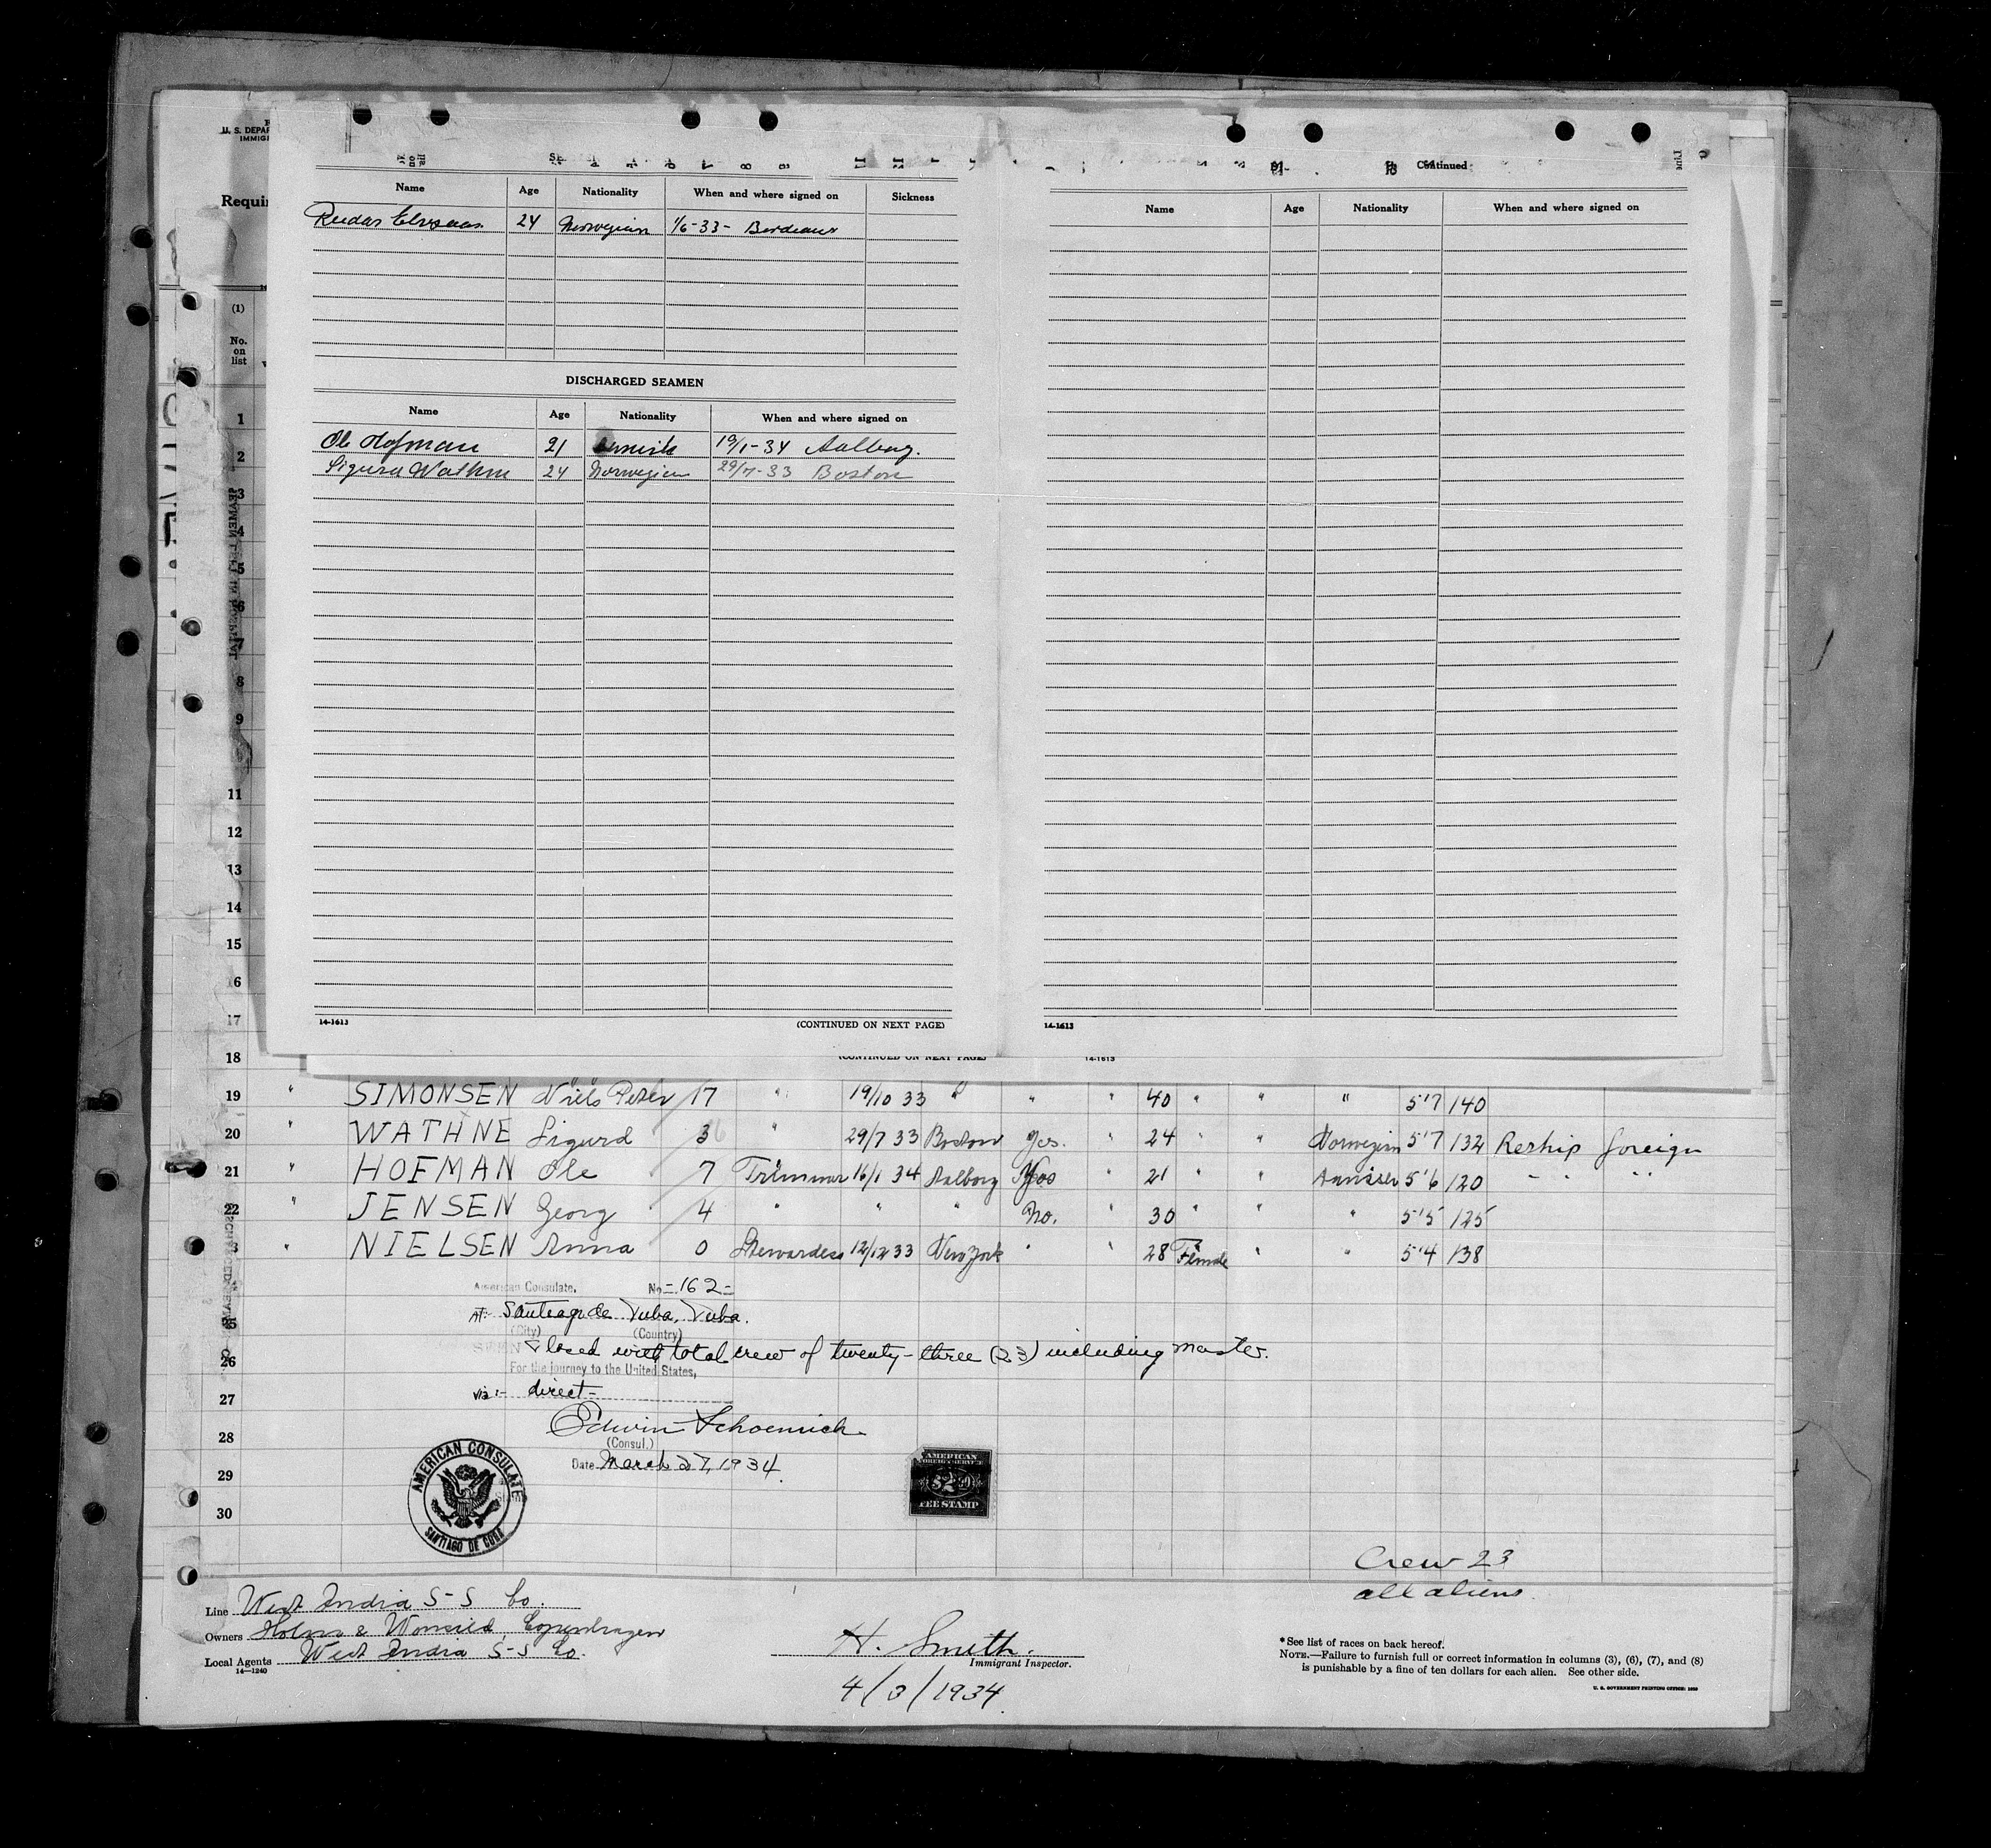 U. S. DEPAR
IMMIG
Requir
Continued
Name Age Nationality When and where signed on Sickness
Reidar 24 Norwegian 1/6-33- Bordeaux
DISCHARGED SEAMEN
Name Age Nationality When and where signed on
Ole Hofman 21 19/1-34 Aalborg.
Sigurd Wathne 24 Norwegian 29/7-33 Boston
14-1613 (CONTINUED ON NEXT PAGE)
Name Age Nationality When and where signed on
14-1613
(CONTINUED ON NEXT PAGE) 14-1613
(1)
No.
on
list
1
2
3
4
5
6
7
8
9
11
12
13
14
15
16
17
18
19 " SIMONSEN Niels Peter 17 " 19/10 33 " " " 40 " " " 5'7 140
20 " WATHNE Sigurd 36 " 29/7 33 Boston Yes. " 24 " " Norwegian 5'7 132 Reship foreign
21 " HOFMAN Ole 7 Trimmer 16/1 34 Aalborg Yes " 21 " " 5'6 120 " " " "
22 " JENSEN Georg 4 " " " No. " 30 " " " 5'5 125
3 " NIELSEN Anna 0 Stewardess 12/12 33 New York " " 28 Female " " 5'4 138
American Consulate. No -162-
At:- Santiago de Cuba, Cuba.
25 (City) (Country)
26 Closed with total crew of twenty-three (23) including Master.
For the journey to the United States,
27 via:- direct-
28 Edwin Schoenrich
(Consul.)
29 Date March 27, 1934.
30
AMERICAN CONSULATE
SANTIAGO DE CUBA
AMERICAN
FOREIGN SERVICE
$2.00
FEE STAMP
Crew 23
all aliens.
Line West India S-S Co.
Owners Holm & Wonsild, Copenhagen
Local Agents West India S-S Co.
14-1240
H. Smith.
Immigrant Inspector.
4/3/1934
*See list of races on back hereof.
NOTE.—Failure to furnish full or correct information in columns (3), (6), (7), and (8)
is punishable by a fine of ten dollars for each alien. See other side.
U. S. GOVERNMENT PRINTING OFFICE: